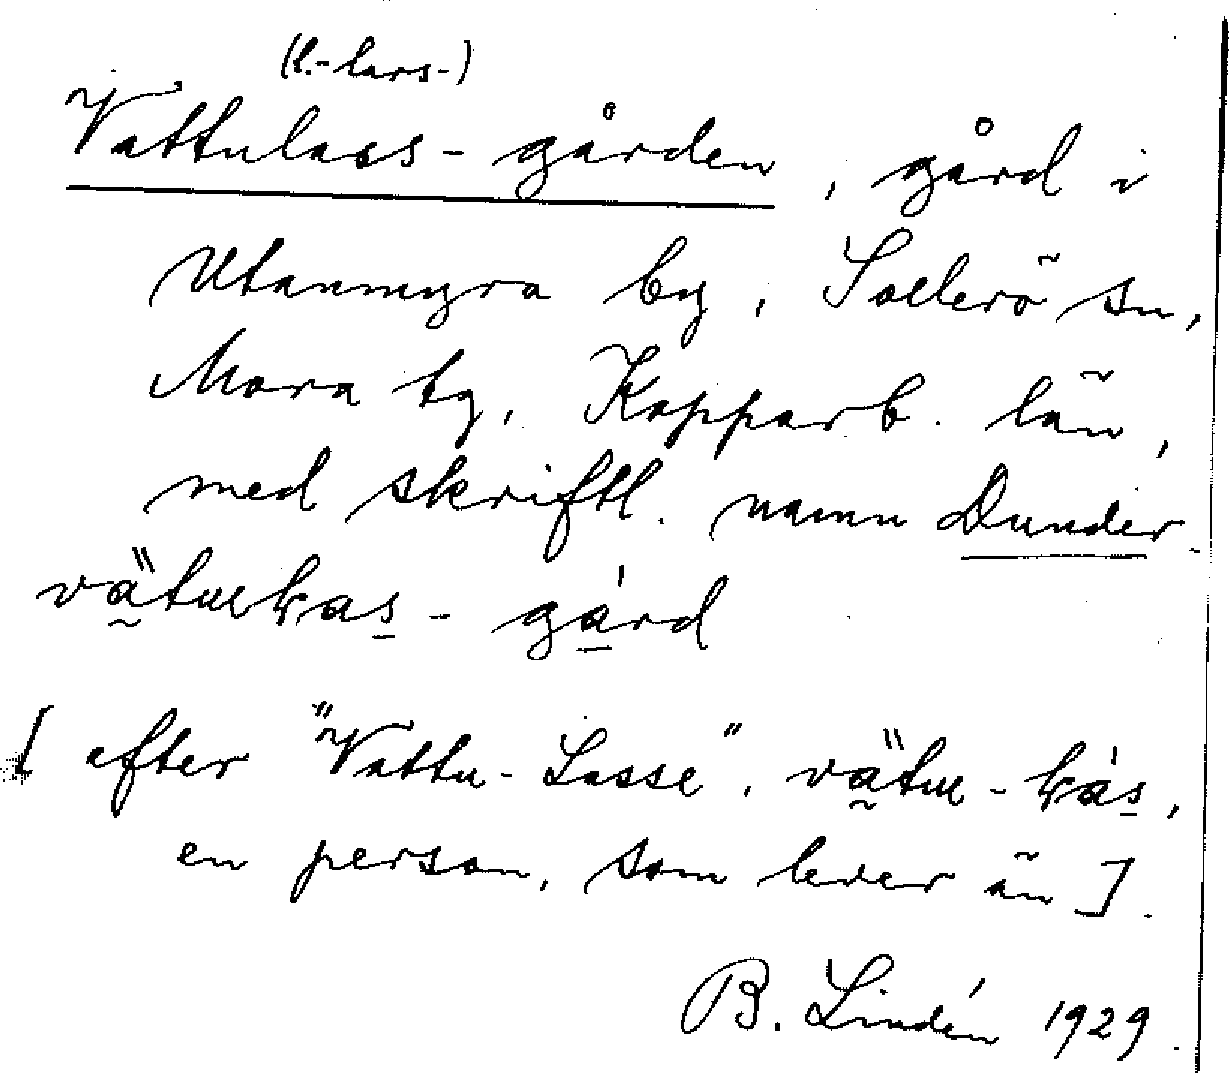 (l.-lars-)
Vattulass-gården, gård i
Utanmyra by, Sollerö sn,
Mora tg, Kopparb. län,
med skriftl. namn Dunder.
-gård
[efter "Vattu-Lasse",
en person, som lever än].
B. Lindén 1929